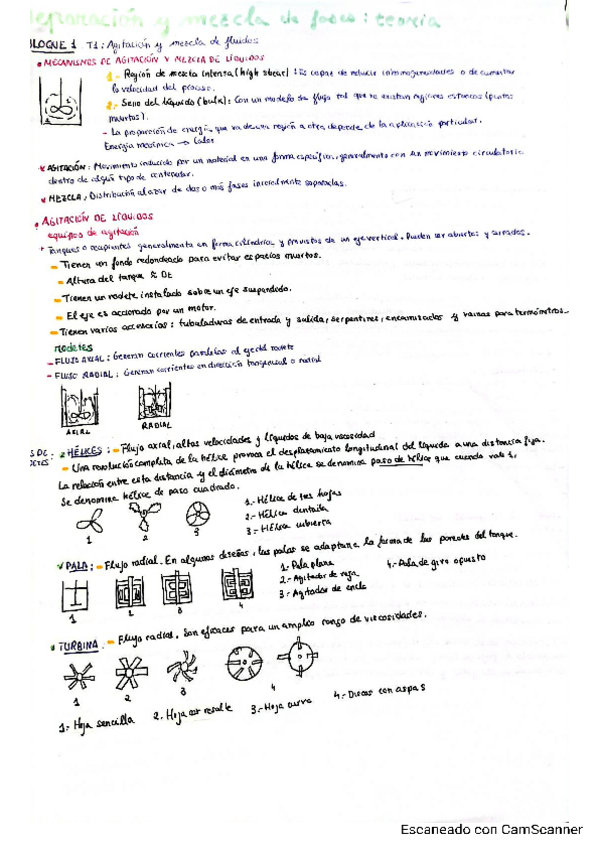 Separación y mezcla de fases: teoría
BLOQUE 1 T1: Agitación y mezcla de fluidos
• MECANISMOS DE AGITACIÓN Y MEZCLA DE LÍQUIDOS
1.- Región de mezcla intensa (high shear): Es capaz de reducir inhomogeneidades o de aumentar
la velocidad del proceso.
2.- Seno del líquido (bulk): Con un modelo de flujo tal que no existan regiones estancas (puntos
muertos).
- La proporción de energía que va de una región a otra depende de la aplicación particular.
Energía mecánica → Calor
* AGITACIÓN: Movimiento inducido por un material en una forma específica, generalmente con un movimiento circulatorio
dentro de algún tipo de contenedor.
* MEZCLA, Distribución al azar de dos o más fases inicialmente separadas.
• AGITACIÓN DE LÍQUIDOS
equipos de agitación
* Tanques o recipientes generalmente en forma cilíndrica y provistos de un eje vertical. Pueden ser abiertos y cerrados.
- Tienen un fondo redondeado para evitar espacios muertos.
- Altura del tanque ≈ Dt
- Tienen un rodete instalado sobre un eje suspendido.
- El eje es accionado por un motor.
- Tienen varios accesorios: tubuladuras de entrada y salida, serpentines, encamisados y vainas para termómetros.
rodetes
- FLUJO AXIAL: Generan corrientes paralelas al eje del rodete
- FLUJO RADIAL: Generan corrientes en dirección tangencial o radial
AXIAL RADIAL
S DE : HÉLICES: - Flujo axial, altas velocidades y líquidos de baja viscosidad
- Una revolución completa de la hélice provoca el desplazamiento longitudinal del líquido a una distancia fija.
La relación entre esta distancia y el diámetro de la hélice se denomina paso de hélice que cuando vale 1,
se denomina hélice de paso cuadrado.
1.- Hélice de tres hojas
2.- Hélice dentada
3.- Hélice cubierta
1 2 3
✓ PALA: - Flujo radial. En algunos diseños, las palas se adaptan a la forma de las paredes del tanque.
1.- Pala plana 4.- Pala de giro opuesto
2.- Agitador de reja
3.- Agitador de ancla
1 1 3 4
TURBINA. - Flujo radial. Son eficaces para un amplio rango de viscosidades.
1 2 3 4
1.- Hoja sencilla 2. Hoja con resalte 3.- Hoja curva 4.- Discos con aspas
Escaneado con CamScanner